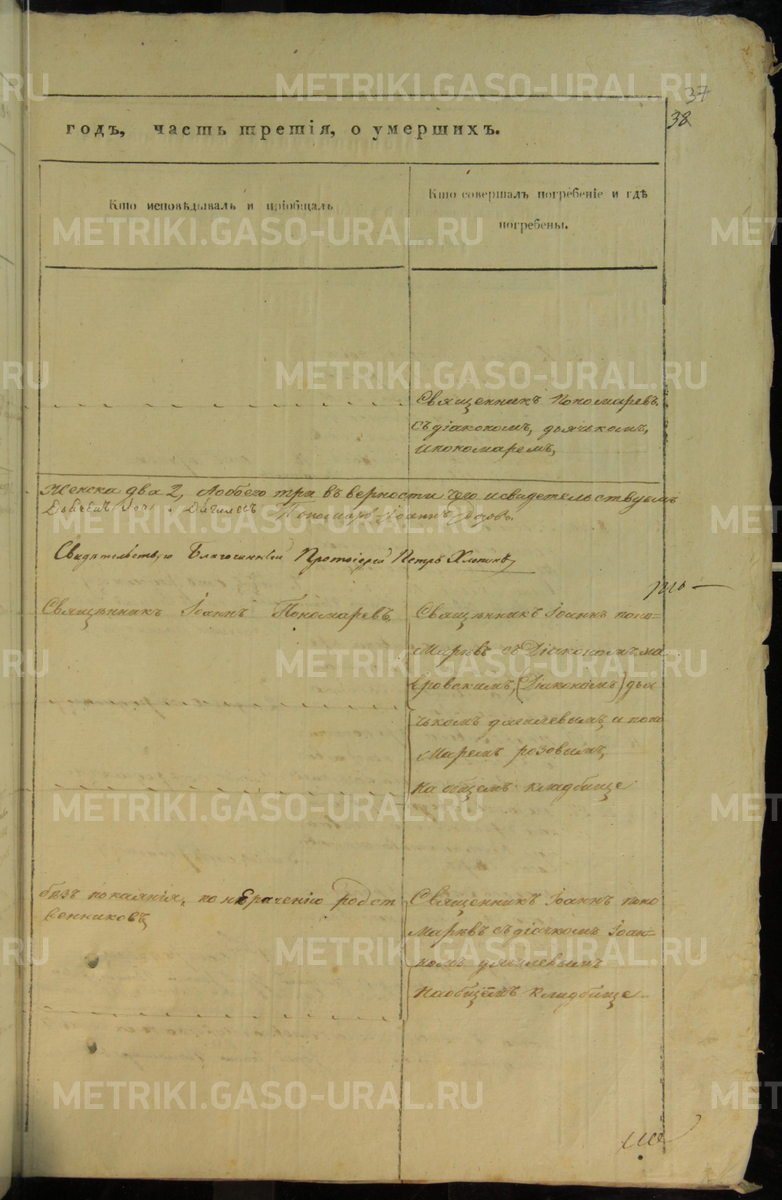 37
38
годъ, часть третія, о умершихъ.
Кто исповѣдывалъ и пріобщалъ
Кто совершалъ погребеніе и гдѣ
погребены.
Священникъ Пономаревъ
съ діакономъ, дьячкомъ,
и пономаремъ,
Женска два 2, Аобоего три въ верности чего и свидетельствуемъ
Пономарь Іоаннъ
Свидѣтельствую Благочинный Протоіерей Петръ Хлопинъ
Священникъ Іоаннъ Пономаревъ,
Священникъ Іоаннъ поно-
маревъ съ
(Диакономъ) дья
чькомъ и поно
маремъ розовымъ,
На общемъ кладбище
безъ покаянія, по нѣбраченію родст
венниковъ
Священникъ Іоаннъ поно
маревъ съ дьячкомъ Іоан-
номъ
На общемъ кладбище
METRIKI.GASO-URAL.RU